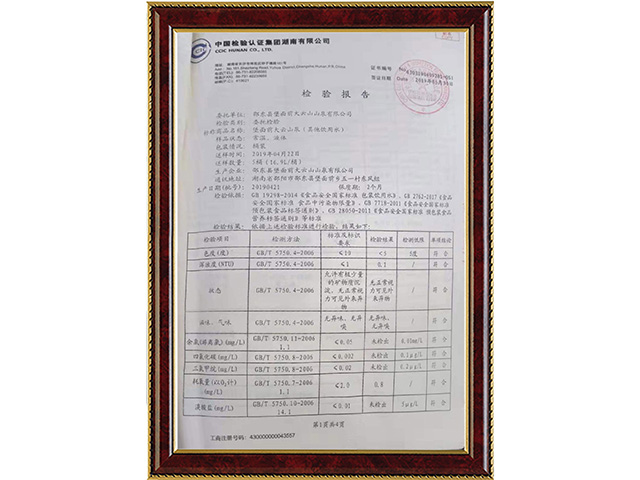 中国检验认证集团湖南有限公司
CCIC HUNAN CO., LTD.
证书编号 No.
签证日期 Date
检 验 报 告
委托单位: 邵东县堡面前大云山山泉有限公司
检验类别: 委托检验
样品名称: 堡面前大云山泉(其他饮用水)
样品状态: 常温、液体
包装情况: 桶装
送样时间: 2019年04月22日
送样数量: 5桶(16.9L/桶)
生产企业: 邵东县堡面前大云山山泉有限公司
通讯地址: 湖南省邵阳市邵东县堡面前乡五一村东风组
生产日期(批号): 20190421 保质期: 2个月
检验依据: GB 19298-2014《食品安全国家标准 包装饮用水》、GB 2762-2017《食品
安全国家标准 食品中污染物限量》、GB 7718-2011《食品安全国家标准
预包装食品标签通则》、GB 28050-2011《食品安全国家标准 预包装食品
营养标签通则》等标准
检验结果: 依据上述检验标准进行检验, 结果如下:
检验项目 检测方法 标准及标识要求 检验结果 检测低限 单项结论
色度(度) GB/T 5750.4-2006 ≤10 <5 5度 符合
浑浊度(NTU) GB/T 5750.4-2006 ≤1 0.1 / 符合
状态 GB/T 5750.4-2006 允许有极少量的矿物质沉淀,无正常视力可见外来异物 无正常视力可见外来异物 / 符合
滋味、气味 GB/T 5750.4-2006 无异味、无异嗅 无异味、无异嗅 / 符合
余氯(游离氯)(mg/L) GB/T 5750.11-2006 1.1 ≤0.05 未检出 0.01mg/L 符合
四氯化碳(mg/L) GB/T 5750.8-2006 ≤0.002 未检出 0.1μg/L 符合
三氯甲烷(mg/L) GB/T 5750.8-2006 ≤0.02 未检出 0.2μg/L 符合
耗氧量(以O₂计)(mg/L) GB/T 5750.7-2006 1.1 ≤2.0 0.8 / 符合
溴酸盐(mg/L) GB/T 5750.10-2006 14.1 ≤0.01 未检出 5μg/L 符合
第1页共4页
工商注册号码: 430000000043557